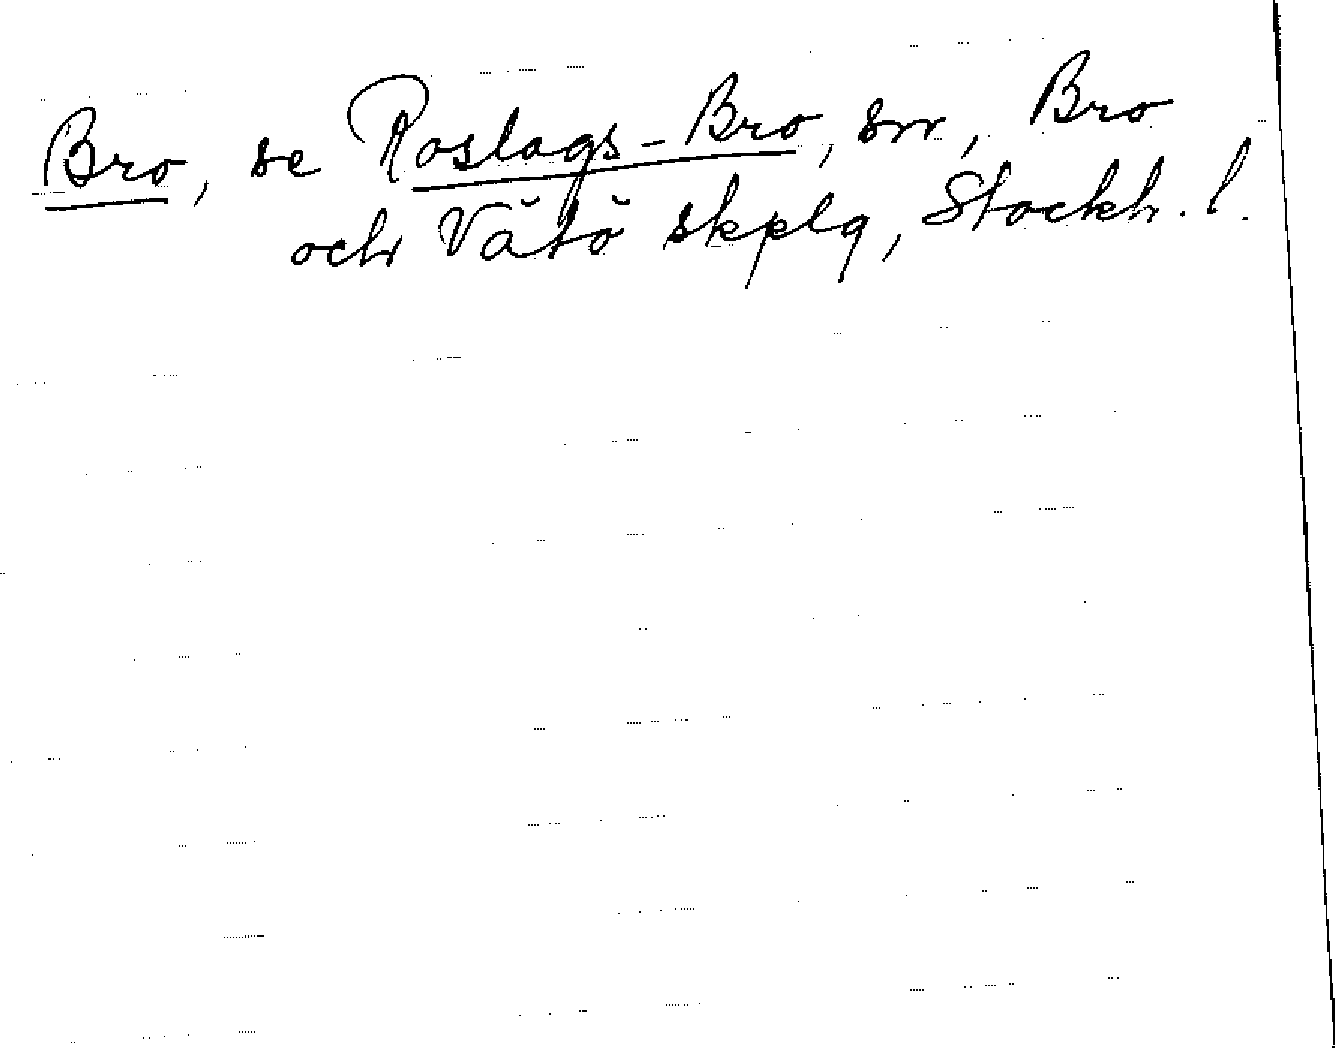 Bro, se Roslags-Bro, sn, Bro
och Vätö skplg, Stockh. l.